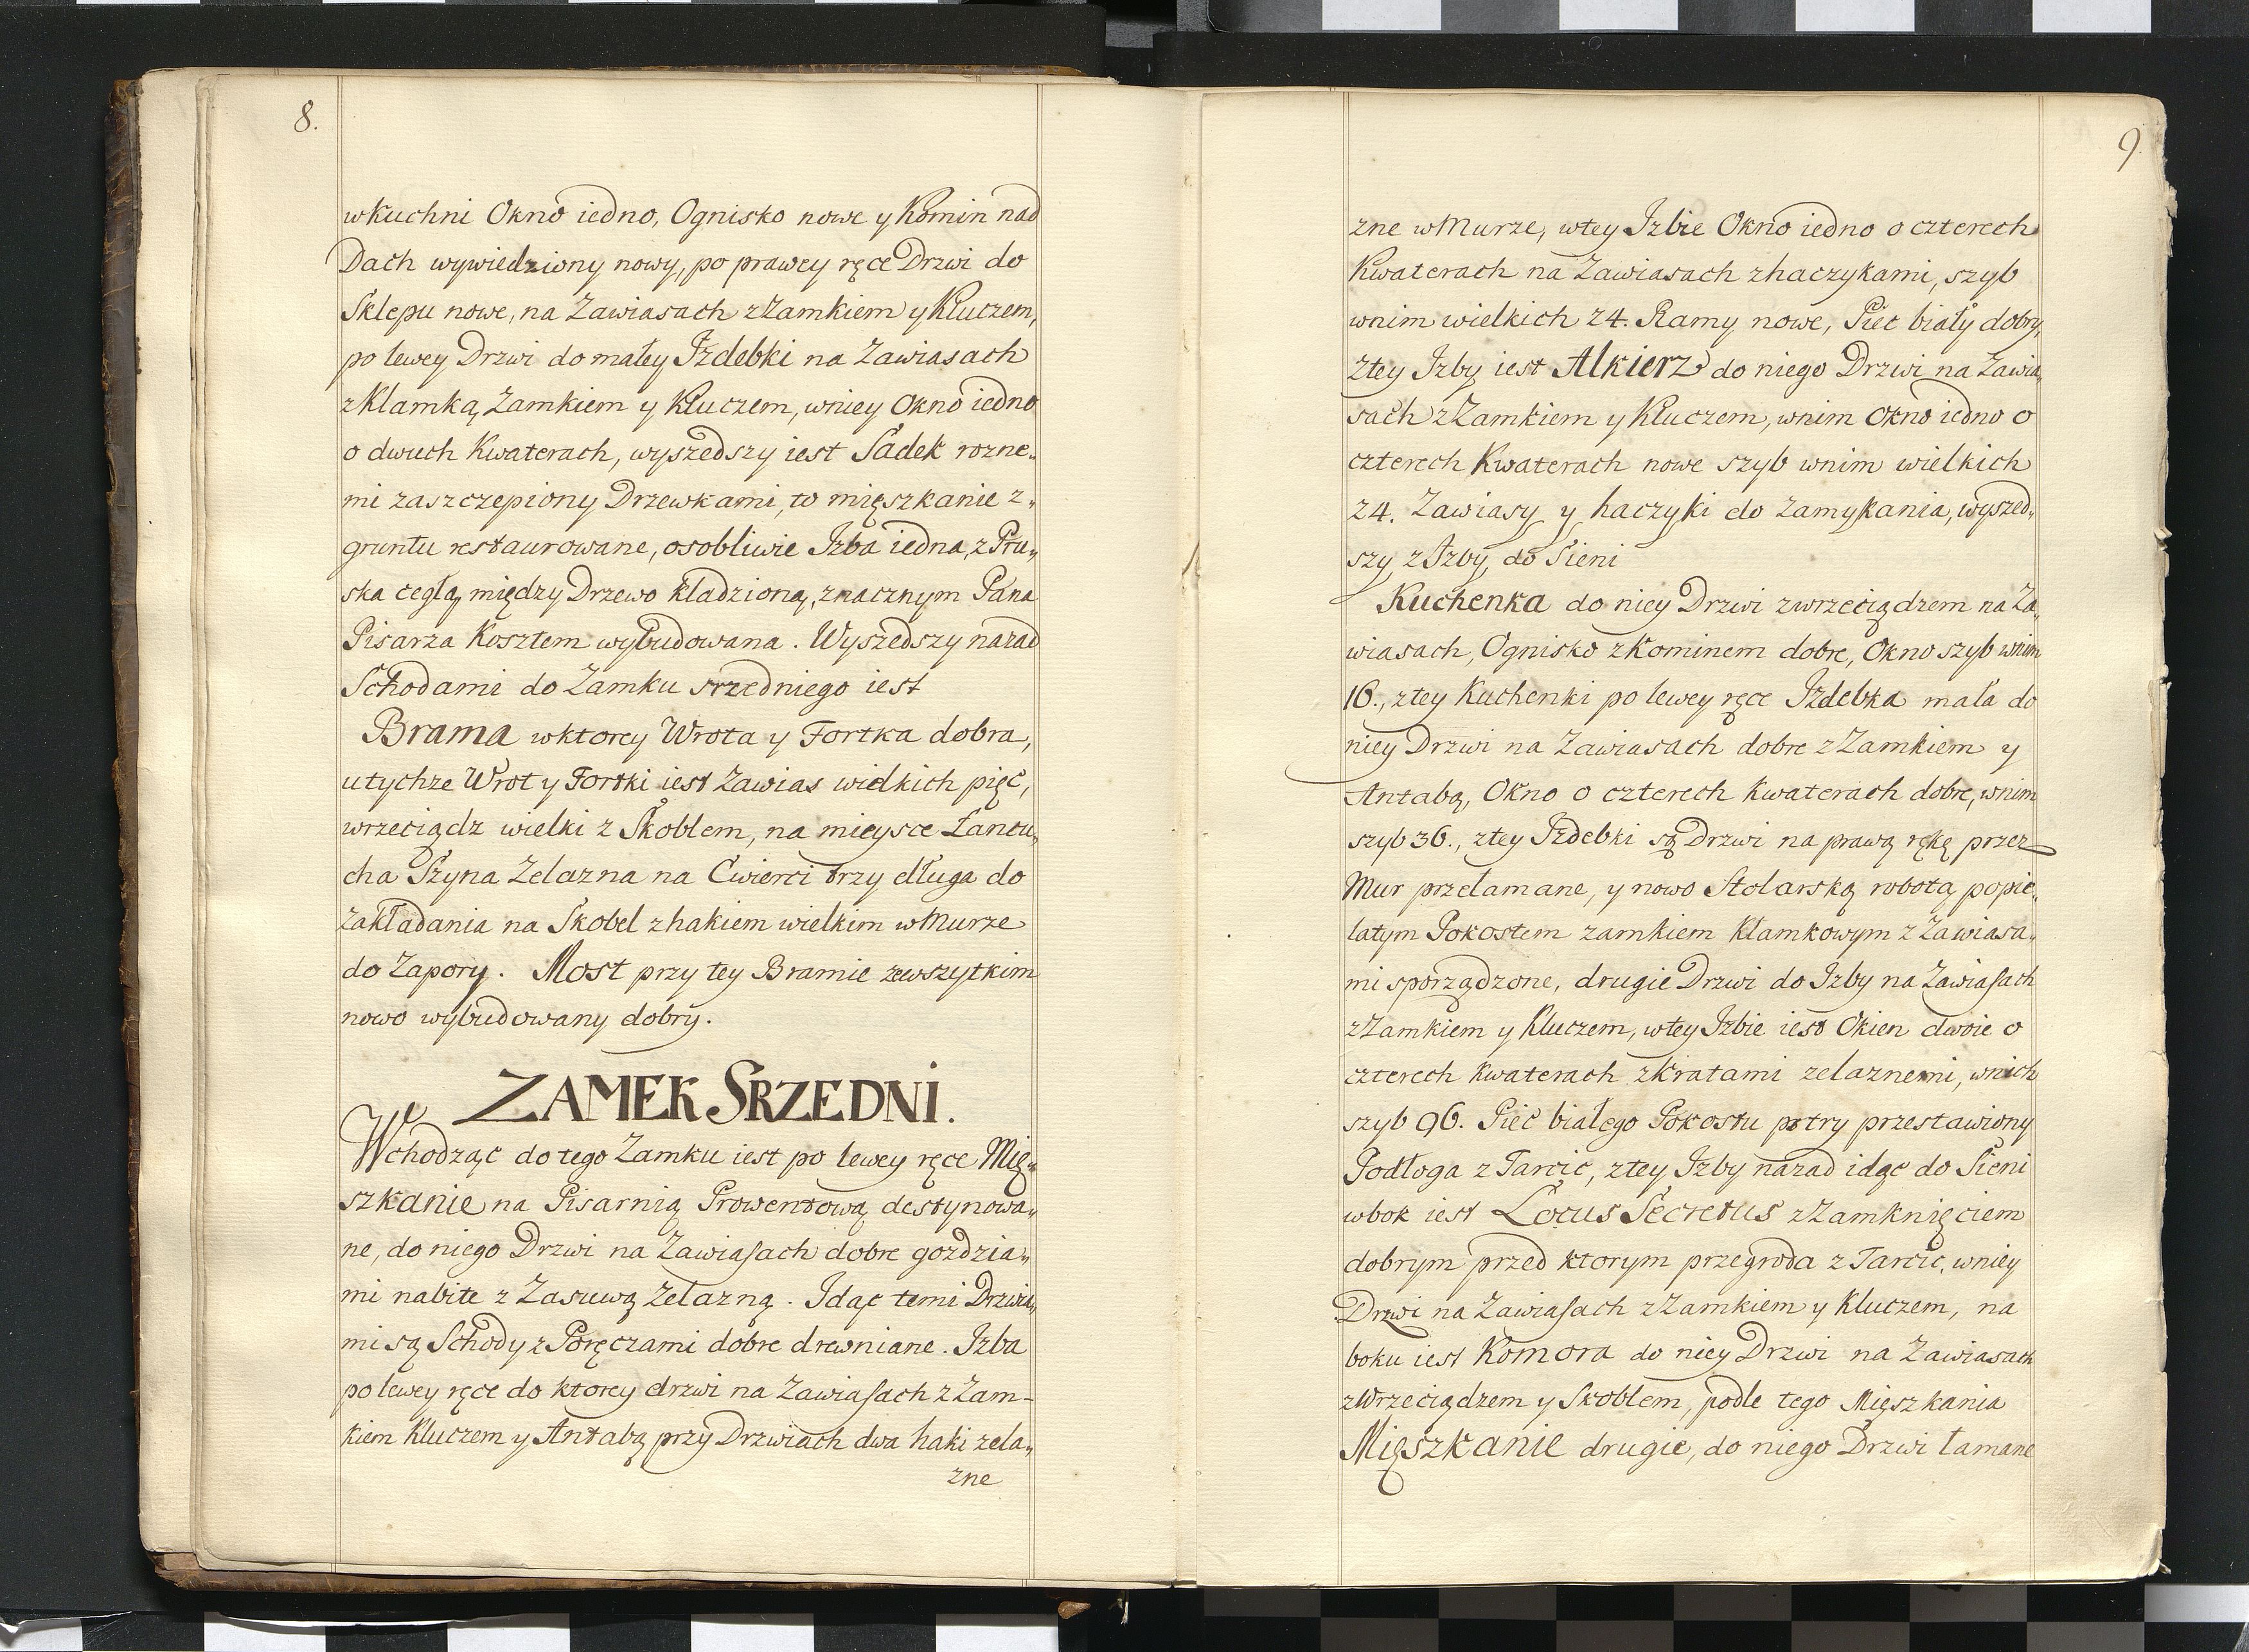 8.
wKuchni Okno iedno, Ognisko nowe y Komin nad
Dach wywiedziony nowy, po prawey ręce Drzwi do
Sklepu nowe, na Zawiasach z Zamkiem y Kluczem,
po lewey Drzwi do małey Izdebki na Zawiasach
z Klamką, Zamkiem y Kluczem, wniey Okno iedno
o dwuch Kwaterach, wyszedszy iest Sadek rozne„
mi zaszczepiony Drzewkami, to mięszkanie z„
gruntu restaurowane, osobliwie Izba iedna, z Pru„
ska cegłą między Drzewo kladzioną, znacznym Pana
Pisarza Kosztem wybudowana. Wyszedszy nazad
Schodami do Zamku srzedniego iest
Brama wktorey Wrota y Fortka dobra,
utychze Wrot y Fortki iest Zawias wielkich pięć,
wrzeciądz wielki z Skoblem, na mieysce Łancu„
cha Szyna Zelazna na Cwierci trzy długa do
Zakładania na Skobel zhakiem wielkim wMurze
do Zapory. Most przy tey Bramie zewszytkim
nowo wybudowany dobry.
ZAMEK SRZEDNI.
Wchodząc do tego Zamku iest po lewey ręce Mię„
szkanie na Pisarnią Prowentową destynowa„
ne, do niego Drzwi na Zawiasach dobre gozdzia„
mi nabite z Zasuwą Zelazną. Idąc temi Drzwia„
mi są Schody z Poręczami dobre drewniane. Izba
po lewey ręce do ktorey drzwi na Zawiasach z Zam-
kiem Kluczem y Antabą przy Drzwiach dwa haki zela„
zne
9
zne wMurze, wtey Izbie Okno iedno o czterech
Kwaterach na Zawiasach zhaczykami, szyb
wnim wielkich 24. Ramy nowe, Piec biały dobry,
Ztey Izby iest Alkierz do niego Drzwi na Zawia„
sach z Zamkiem y Kluczem, wnim Okno iedno o
czterech Kwaterach nowe szyb wnim wielkich
24. Zawiasy y haczyki do Zamykania, wyszed„
szy z Izby do Sieni
Kuchenka do niey Drzwi zwrzeciądzem na Za„
wiasach, Ognisko zKominem dobre, Okno szyb wnim
16., ztey Kuchenki po lewey ręce Izdebka mała do
niey Drzwi na Zawiasach dobre z Zamkiem y
Antabą, Okno o czterech Kwaterach dobre, wnim
szyb 36., ztey Izdebki są Drzwi na prawą rękę przez
Mur przełamane, y nowo Stolarską robotą popie„
latym Pokostem zamkiem Klamkowym z Zawiasa„
mi sporządzone, drugie Drzwi do Izby na Zawiasach
z Zamkiem y Kluczem, wtey Izbie iest Okien dwoie o
czterech Kwaterach zKratami zelaznemi, wnich
szyb 96. Piec białego Pokostu przestawiony
Podłoga z Tarcic, ztey Izby nazad idąc do Sieni
wbok iest Locus Secretus z Zamknięciem
dobrym przed ktorym przegroda z Tarcic, wniey
Drzwi na Zawiasach z Zamkiem y Kluczem, na
boku iest Komora do niey Drzwi na Zawiasach
zWrzeciądzem y Skoblem, podle tego Mięszkania
Mięszkanie drugie, do niego Drzwi łamane